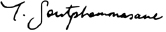 T. Soutphommasane